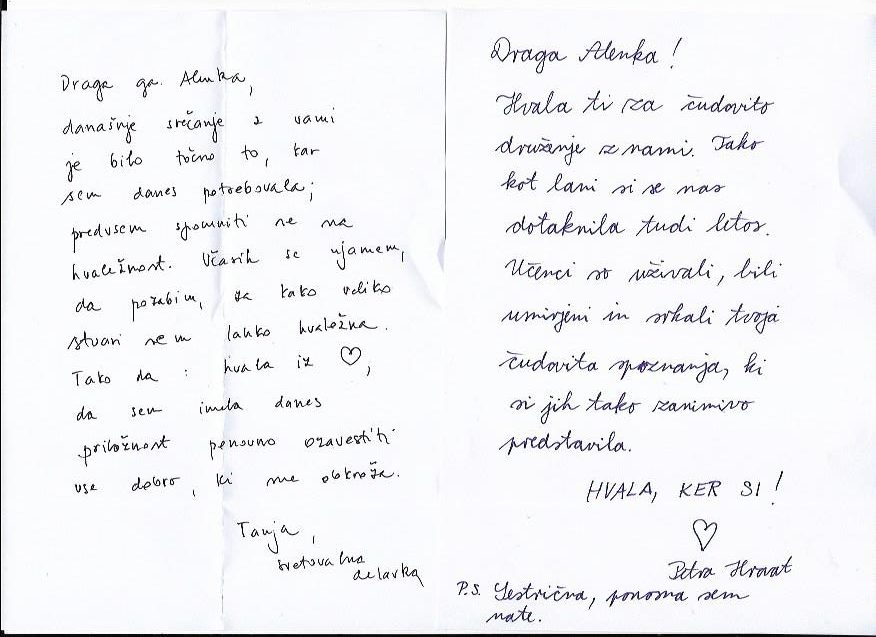 Draga ga. Alenka,
današnje srečanje z vami
je bilo točno to, kar
sem danes potrebovala;
predvsem spomniti se na
hvaležnost. Včasih se ujamem,
da pozabim, za kako veliko
stvari sem lahko hvaležna.
Tako da : hvala iz ♡,
da sem imela danes
priložnost ponovno ozavestiti
vse dobro, ki me obkroža.
Tanja,
svetovalna
delavka
Draga Alenka!
Hvala ti za čudovito
druženje z nami. Tako
kot lani si se nas
dotaknila tudi letos.
Učenci so uživali, bili
umirjeni in srkali tvoja
čudovita spoznanja, ki
si jih tako zanimivo
predstavila.
HVALA, KER SI!
♡
Petra Hrovat
P.S. Sestrična, ponosna sem
nate.